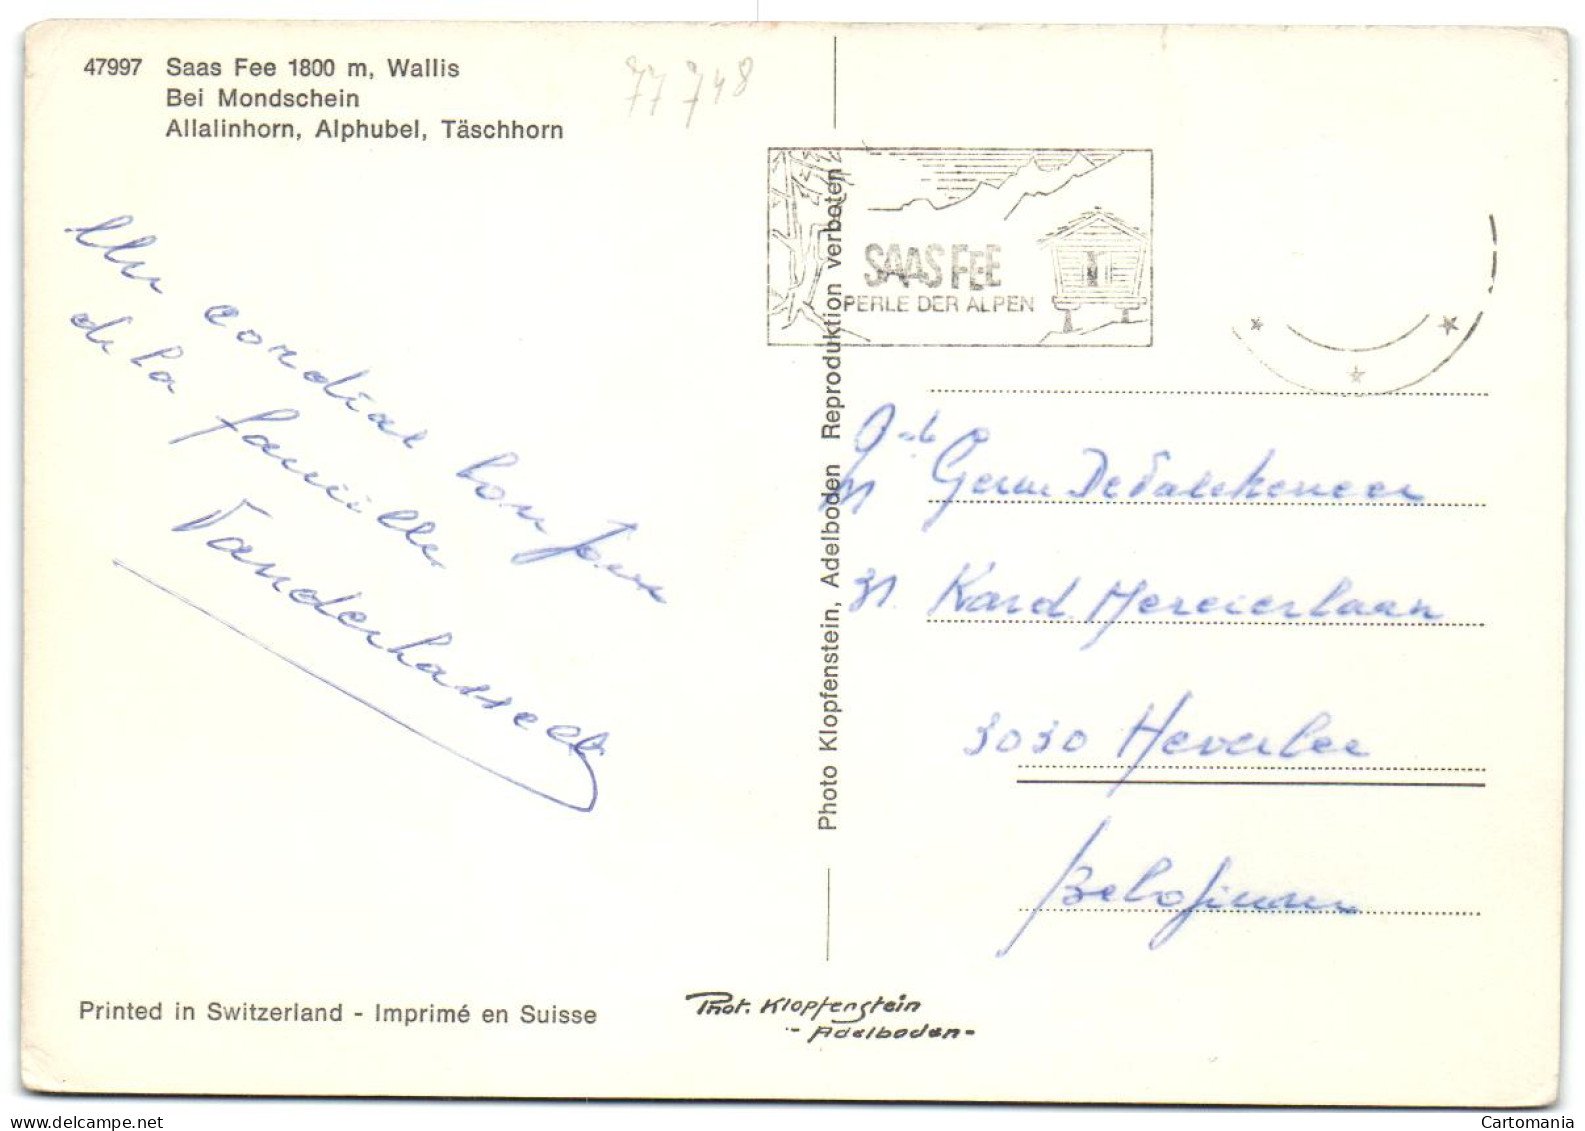 47997 Saas Fee 1800 m, Wallis
Bei Mondschein
Allalinhorn, Alphubel, Täschhorn
77 748
Un cordial bonjour
de la famille
Vanderhasselt
Photo Klopfenstein, Adelboden Reproduktion verboten
SAAS FEE
PERLE DER ALPEN
Germ
31. Kard. Mercierlaan
3030 Heverlee
Belgium
Printed in Switzerland - Imprimé en Suisse
Phot. Klopfenstein
- Adelboden -
Cartomania